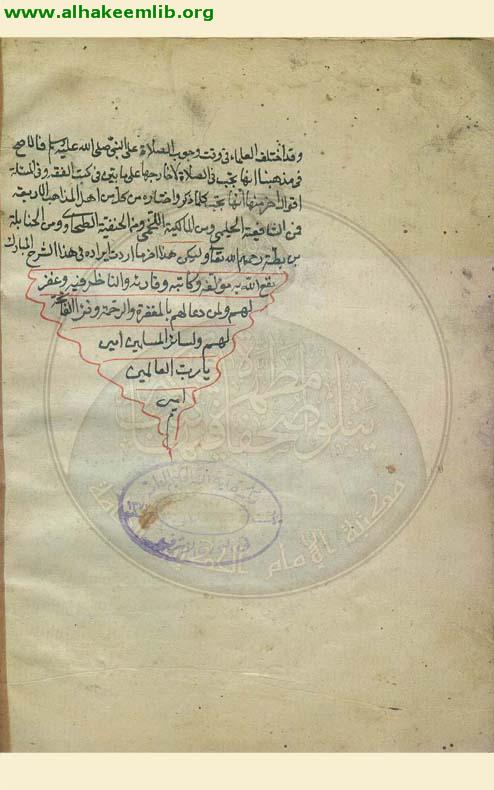 www.alhakeemlib.org
وقد اختلف العلماء في وقت وجوب الصلاة على النبي صلى الله عليه وسلم فالاصح
في مذهبنا انها تجب في الصلاة لا خارجها على ما بين في كتب الفقه وفي المسئلة
اقوال اخر منها انها تجب كلما ذكر واختاره من كل من اهل المذاهب الاربعة
فمن الشافعية الحليمي ومن المالكية اللخمي ومن الحنفية الطحاوي ومن الحنابلة
بن بطة رحمهم الله تعالى وليكن هذا اخر ما اردنا ايراده في هذا الشرح المبارك
نفع الله به مؤلفه وكاتبه وقارئه والناظر فيه وغفر
لهم ولمن دعا لهم بالمغفرة والرحمة
لهم ولسائر المسلمين امين
يا رب العالمين
امين
م
يتلو صحفا مطهرة فيها كتب
مكتبة الإمام الحكيم العامة